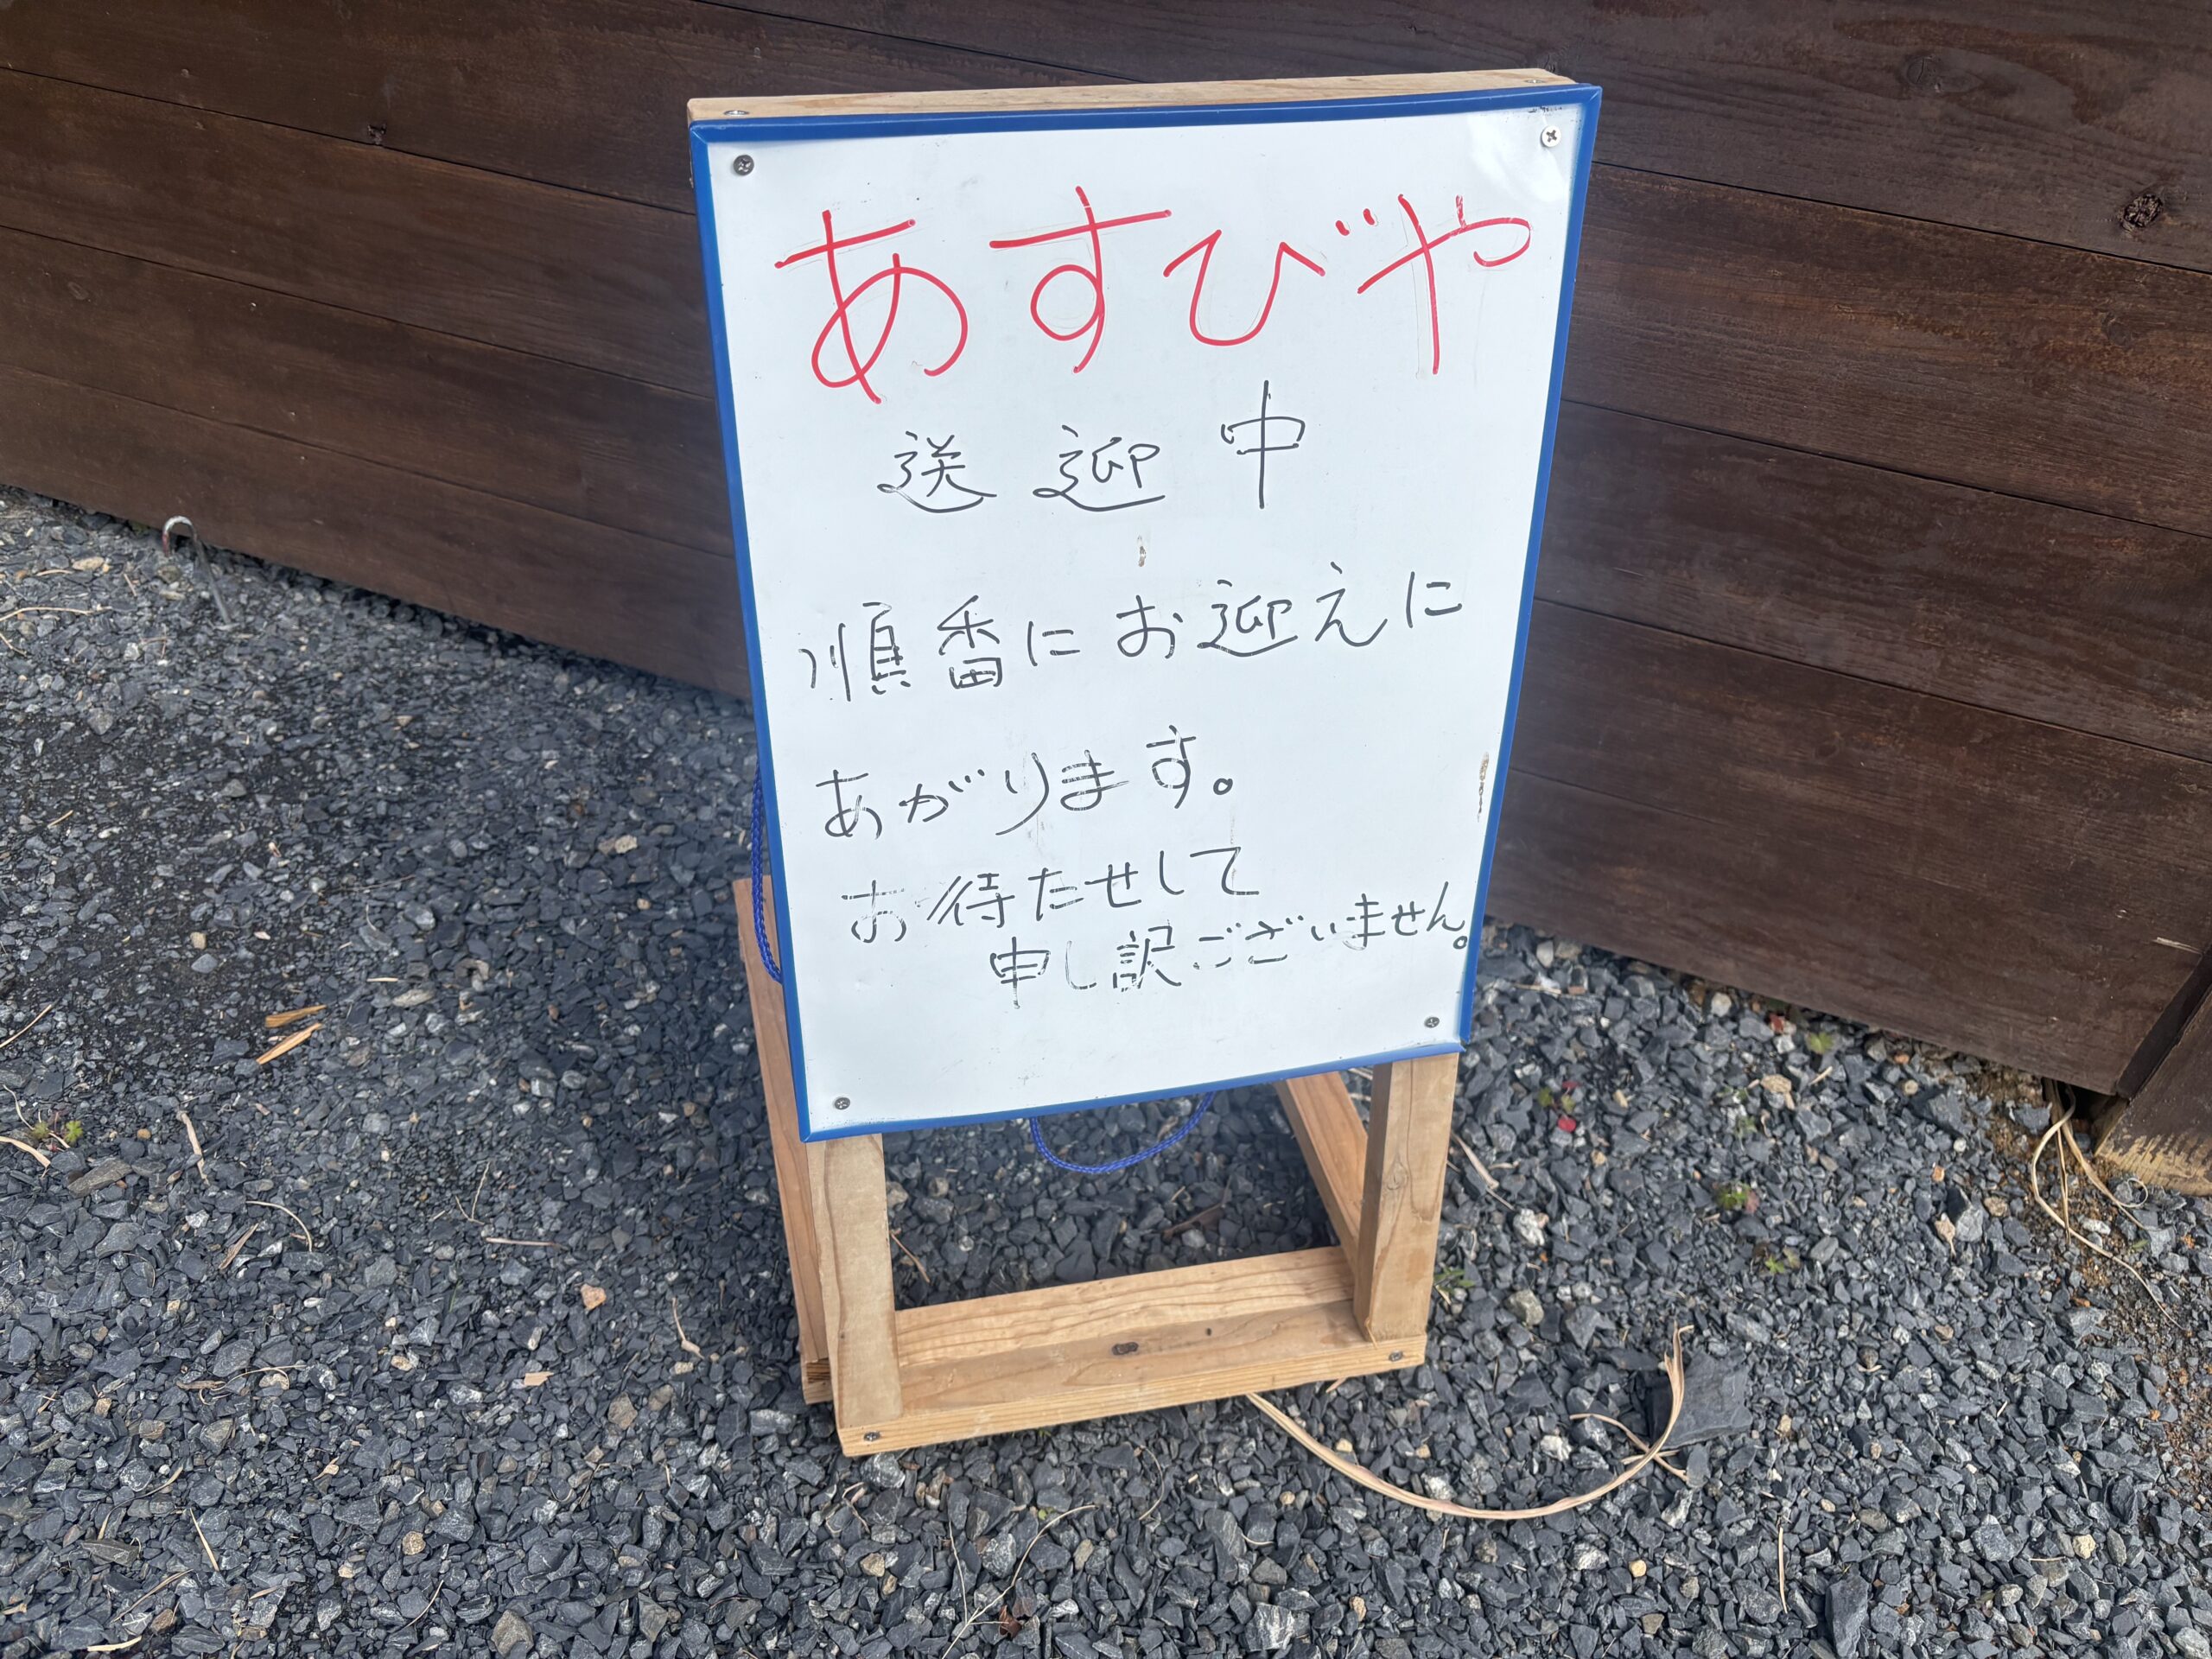 あすびや
送迎中
順番にお迎えに
あがります。
お待たせして
申し訳ございません。